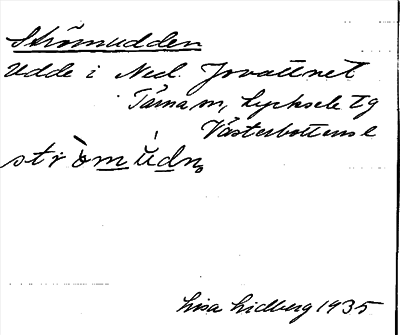 Strömudden
Udde i Ned. Jovattnet
Tärna sn, Lycksele tg
Västerbottens l
strö̀mùdn̥
Lisa Lidberg 1935